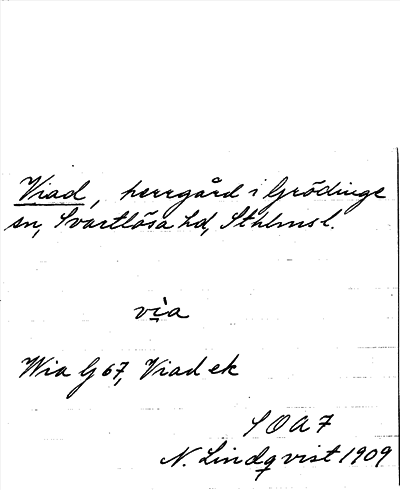 Viad, herrgård i Grödinge
sn, Svartlösa hd, Sthlmsl.
vi̤a
Wia G 67, Viad ek
SOA 7
N. Lindqvist 1909